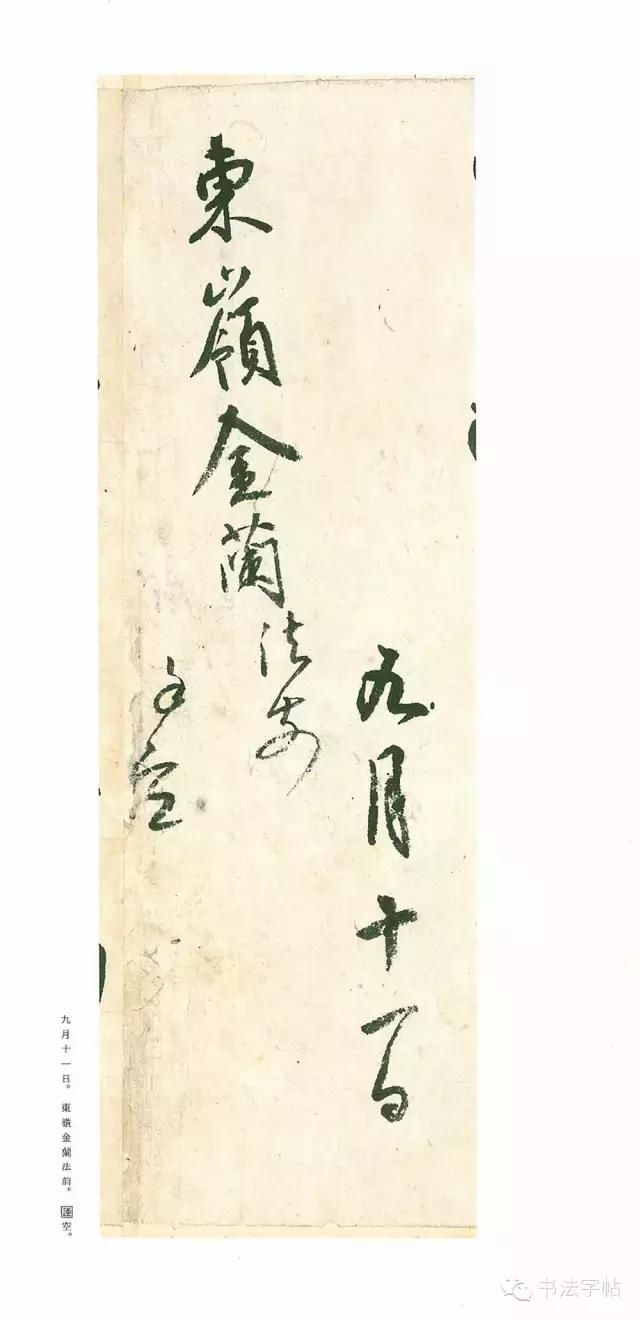 九月十一日
東嶺金蘭法前
謹空
九月十一日。東嶺金蘭法前。謹空。
书法字帖